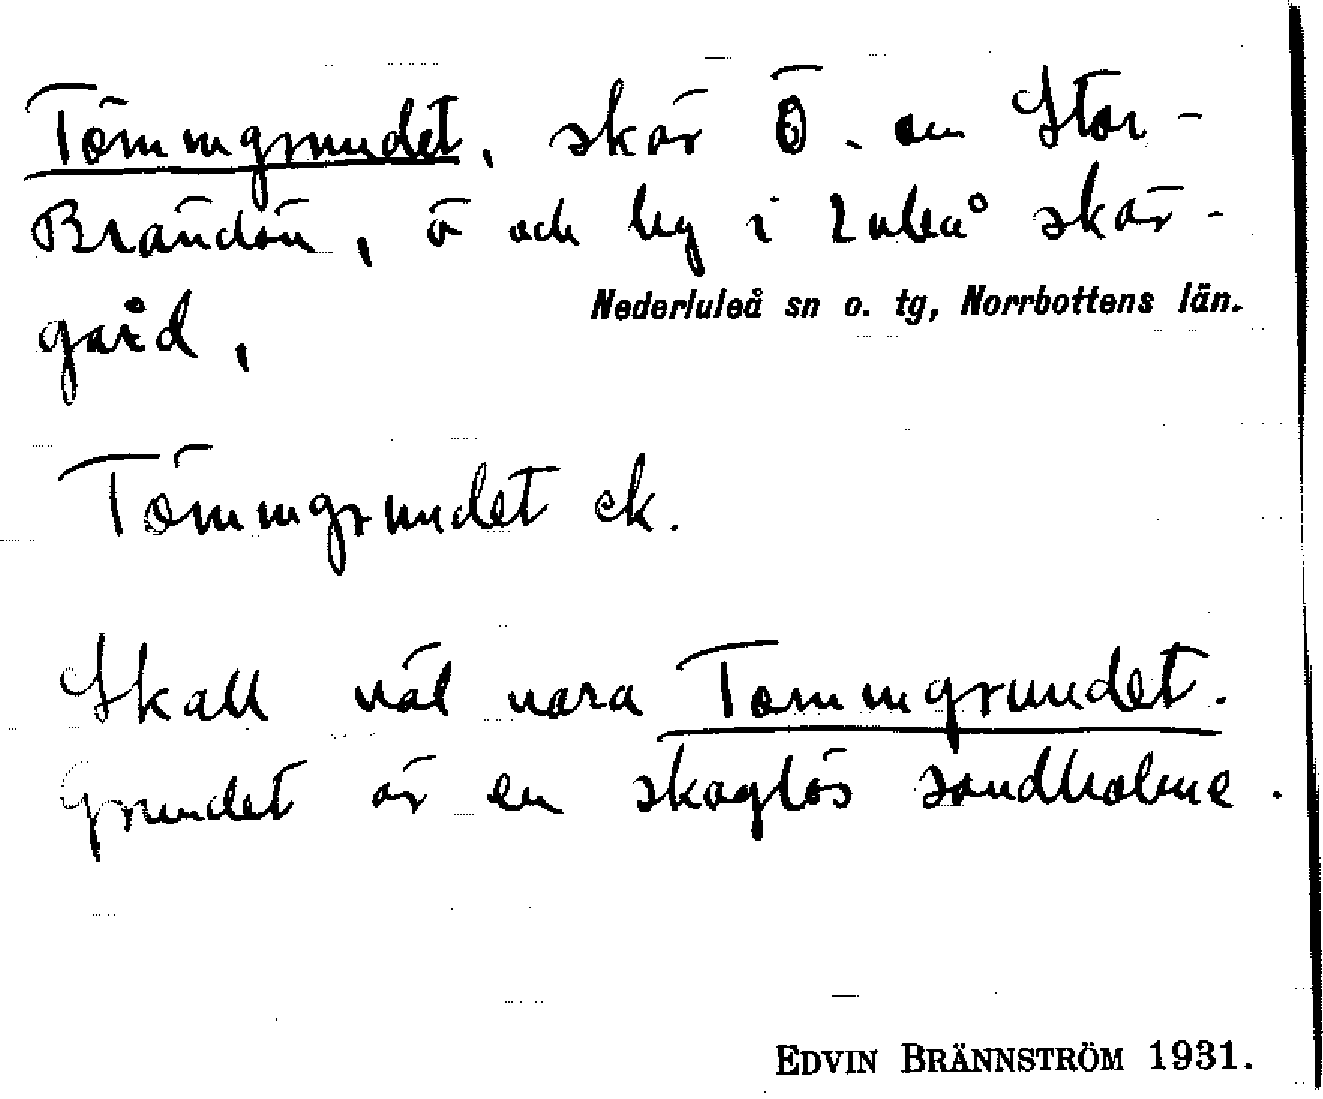 Tömmgrundet, skär Ö. om Stor-
Brändön, ö och by i Luleå skär-
gård,
Nederluleå sn o. tg, Norrbottens län.
Tömmgrundet ek.
Skall väl vara Tommgrundet.
Grundet är en skoglös sandholme.
EDVIN BRÄNNSTRÖM 1931.